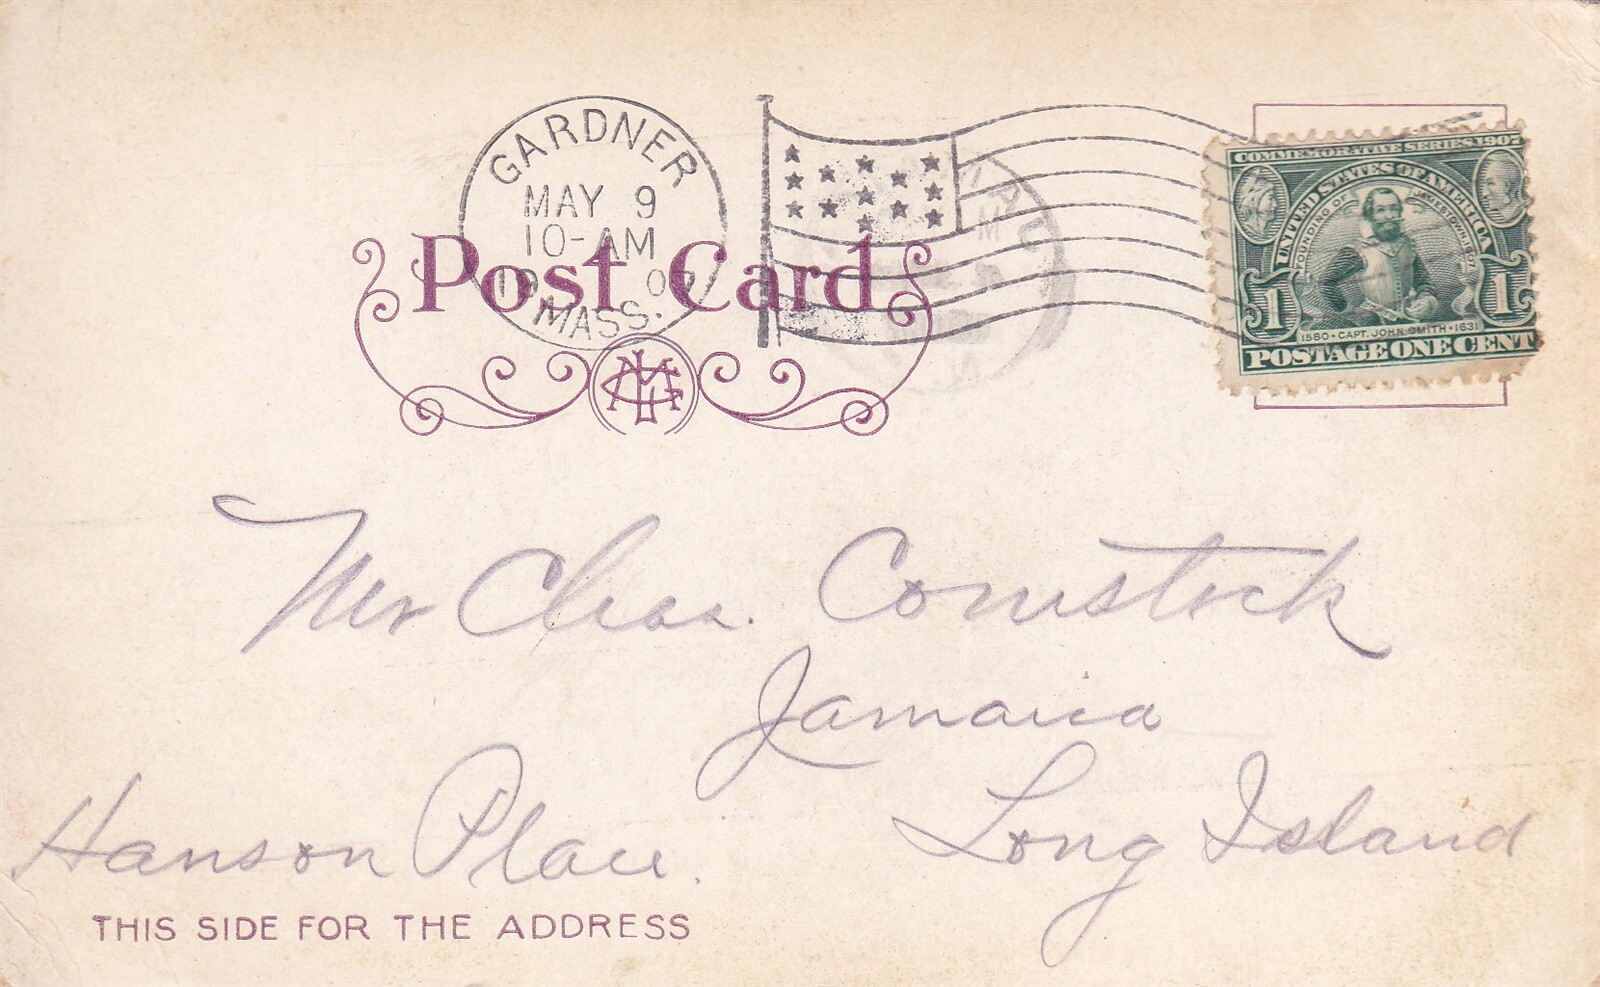 GARDNER
MAY 9
10-AM
MASS.
Post Card
COMMEMORATIVE SERIES 1907
UNITED STATES OF AMERICA
FOUNDING OF JAMESTOWN 1607
1 1
1580 · CAPT. JOHN SMITH · 1631
POSTAGE ONE CENT
Mr Chas. Comstock
Jamaica
Long Island
Hanson Place.
THIS SIDE FOR THE ADDRESS